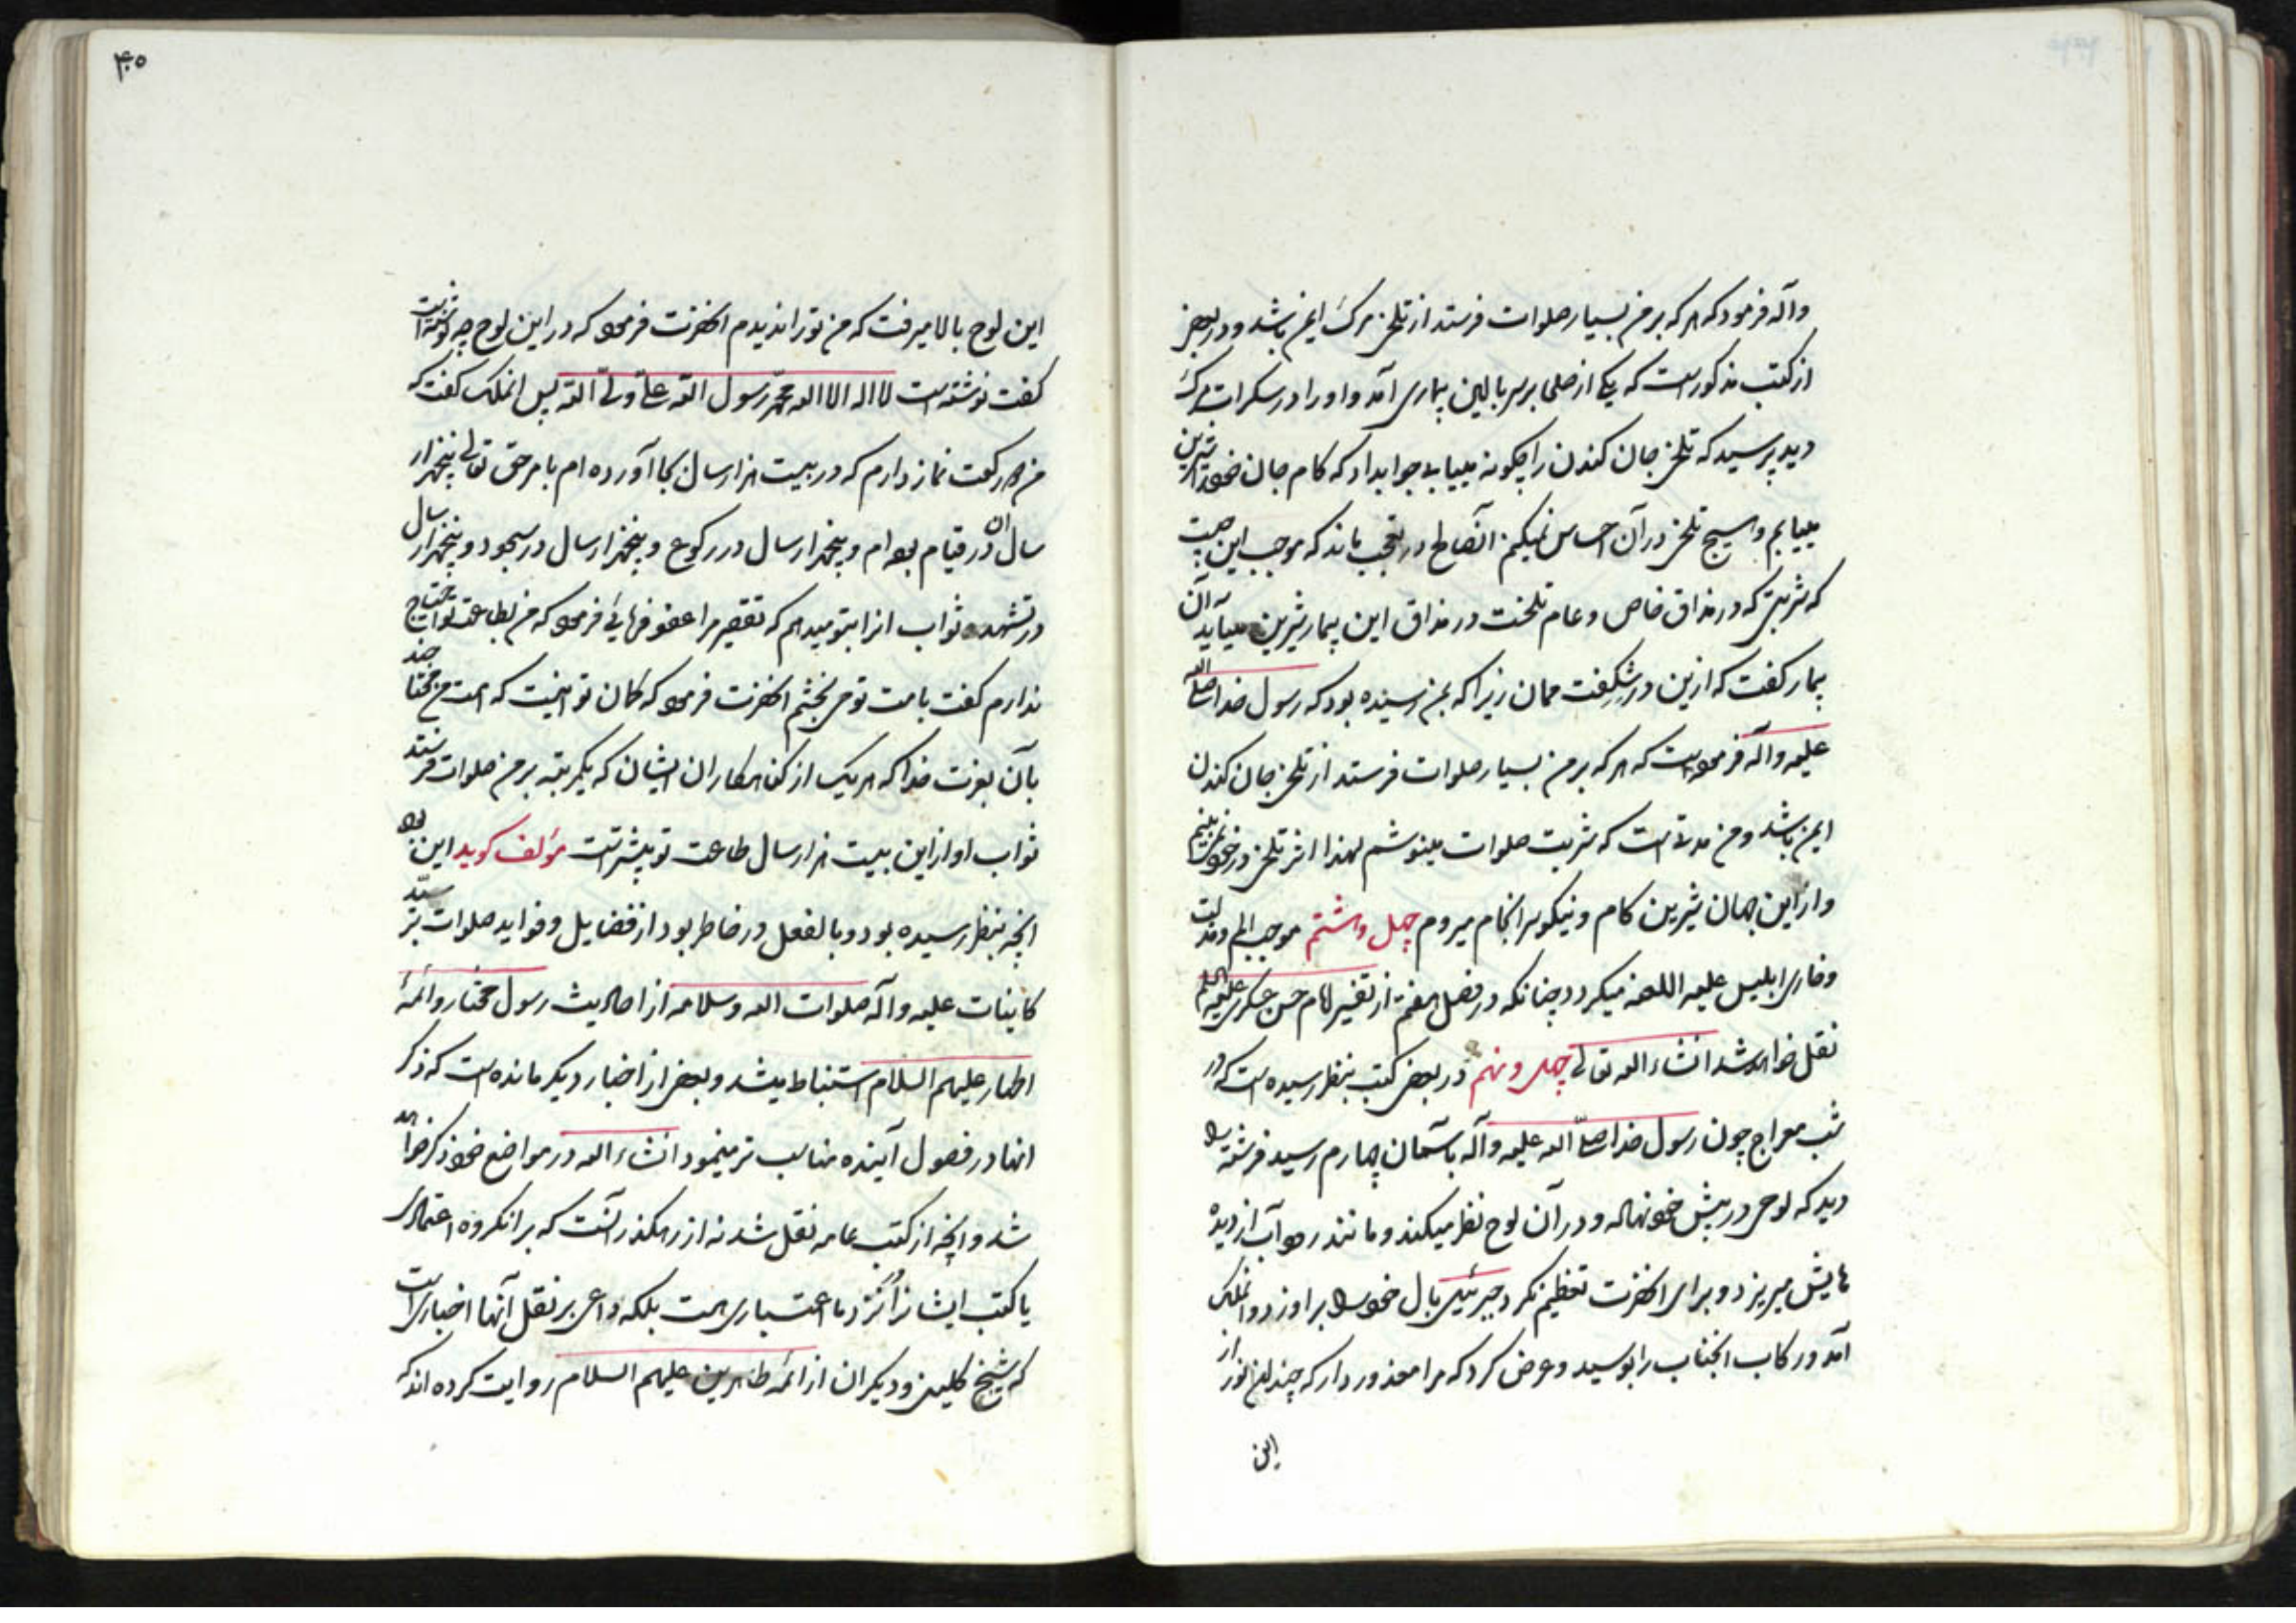 وآله فرمود که هر که بر من بسیار صلوات فرستد از تلخی مرک ایمن باشد و در بعضی
از کتب مذکور است که یکی از صلحا بر سر بالین بیماری آمد و او را در سکرات مرک
دید پرسید که تلخی جان کندن را چکونه مییابی جواب داد که کام جان خود را شیرین
مییابم و هیچ تلخی در آن احساس نمیکنم آنصالح در تعجب ماند که موجب این چیست
که شربتی که در مذاق خاص و عام تلخست در مذاق این بیمار شیرین میآید آن
بیمار کفت که ازین در شکفت ممان زیرا که بمن رسیده بود که رسول خدا صلی الله
علیه وآله فرموده است که هر که بر من بسیار صلوات فرستد از تلخی جان کندن
ایمن باشد و من مدتی است که شربت صلوات مینوشم لهذا اثر تلخی در خود نمی بینم
و از این جهان شیرین کام و نیکو سرانجام میروم چهل و هشتم موجب الم و مذلت
و خاری ابلیس علیه اللعنه میکردد چنانکه در فصل هفتم از تفسیر امام حسن عسکری علیه السلم
نقل خواهد شد انشاء الله تعالی چهل و نهم در بعضی کتب بنظر رسیده است که در
شب معراج چون رسول خدا صلی الله علیه وآله بآسمان چهارم رسید فرشته را
دید که لوحی در پیش خود نهاده و در آن لوح نظر میکند و مانند رود آب از دیده
هایش میریزد و برای آنحضرت تعظیم نکرد جبرئیل بال خود را بر او زد و آنملک
آمد و رکاب آنجناب را بوسید و عرض کرد که مرا معذور دار که چندان نور از
این
۴۰۵
این لوح بالا میرفت که من تو را ندیدم آنحضرت فرمود که در این لوح چه نوشته است
کفت نوشته است لا اله الا الله محمد رسول الله علی ولی الله پس آنملک کفت که
من دو رکعت نماز دارم که در بیست هزار سال بجا آورده ام بامر حق تعالی پنجهزار
سال از آن در قیام بوده ام و پنجهزار سال در رکوع و پنجهزار سال در سجود و پنجهزار سال
در تشهد ثواب انرا بتو میدهم که تقصیر مرا عفو فرمائی فرمود که من بطاعت تو احتیاج
ندارم کفت بامت تو می بخشم آنحضرت فرمود که کمان تو اینست که امت من محتاجند
بآن بعزت خدا که هر یک از کناهکاران ایشان که یکمرتبه بر من صلوات فرستد
ثواب او از این بیست هزار سال طاعت تو بیشتر است مؤلف کوید این بود
آنچه بنظر رسیده بود و بالفعل در خاطر بود از فضایل و فواید صلوات بر سید
کاینات علیه وآله صلوات الله وسلامه از احادیث رسول مختار و ائمهٔ
اطهار علیهم السلام استنباط میشد و بعضی از اخبار دیکر مانده است که ذکر
انها در فصول آینده مناسب تر مینمود انشاء الله در مواضع خود ذکر خواهد
شد و آنچه از کتب عامه نقل شد نه از رهکذر آنست که بر انکروه اعتمادی
یا کتب ایشان را نزد ما اعتباری هست بلکه داعی بر نقل آنها اخباریست
که شیخ کلینی و دیکران از ائمه طاهرین علیهم السلام روایت کرده اند که